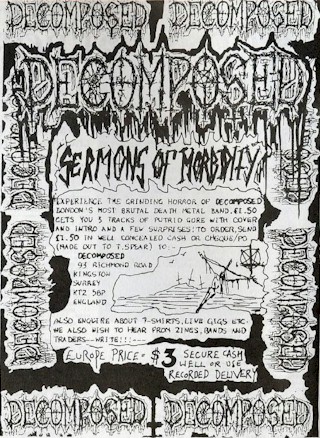 DECOMPOSED DECOMPOSED
DECOMPOSED
SERMONS OF MORBIDITY
EXPERIENCE THE GRINDING HORROR OF DECOMPOSED
LONDON'S MOST BRUTAL DEATH METAL BAND. £1.50
GETS YOU 3 TRACKS OF PUTRID GORE WITH COVER
AND INTRO AND A FEW SURPRISES! TO ORDER, SEND
£1.50 IN WELL CONCEALED CASH OR CHEQUE/PO
(MADE OUT TO T.SPEAR) TO:
DECOMPOSED
93 RICHMOND ROAD
KINGSTON
SURREY
KT2 5BP
ENGLAND
ALSO ENQUIRE ABOUT T-SHIRTS, LIVE GIGS ETC.
WE ALSO WISH TO HEAR FROM ZINES, BANDS AND
TRADERS--WRITE!!!---
EUROPE PRICE- $3 SECURE CASH
WELL OR USE
RECORDED DELIVERY
DECOMPOSED
DECOMPOSED
DECOMPOSED
DECOMPOSED
DECOMPOSED DECOMPOSED